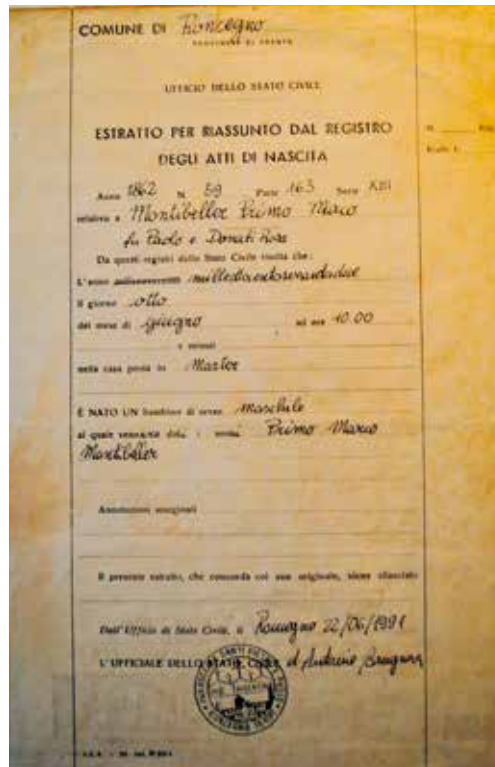 COMUNE DI Roncegno
PROVINCIA DI TRENTO
UFFICIO DELLO STATO CIVILE
ESTRATTO PER RIASSUNTO DAL REGISTRO
DEGLI ATTI DI NASCITA
Anno 1862 N. 59 Parte 163 Serie XIII
relativo a Montibeller Primo Marco
fu Paolo e Donati Rosa
Da questi registri dello Stato Civile risulta che:
L'anno millenovecento milleottocentosessantadue
il giorno otto
del mese di giugno ad ore 10.00
e minuti
nella casa posta in Marter
È NATO UN bambino di sesso Maschile
al quale vennero dati i nomi Primo Marco
Montibeller
Annotazioni marginali
Il presente estratto, che concorda col suo originale, viene rilasciato
Dall'Ufficio di Stato Civile, li Roncegno 22/06/1991
L'UFFICIALE DELLO STATO CIVILE